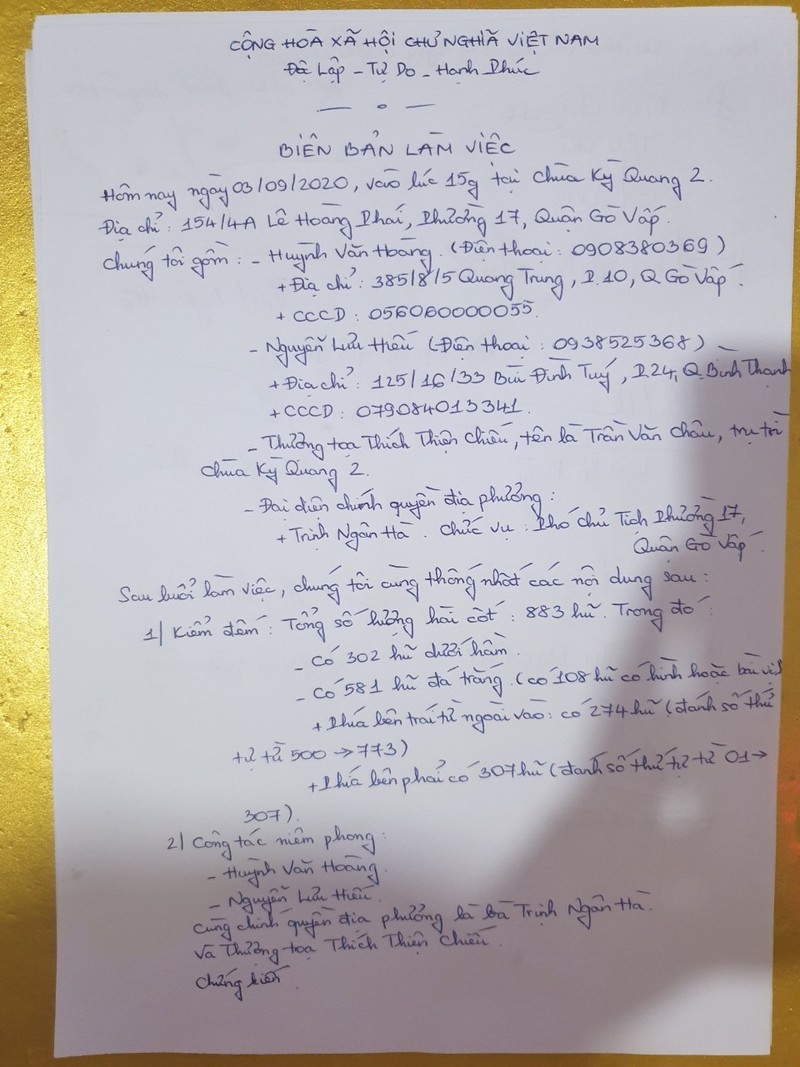 CỘNG HOÀ XÃ HỘI CHỦ NGHĨA VIỆT NAM
Độ Lập - Tự Do - Hạnh Phúc
BIÊN BẢN LÀM VIỆC
Hôm nay ngày 03/09/2020, vào lúc 15g tại chùa Kỳ Quang 2.
Địa chỉ: 154/4A Lê Hoàng Phái, Phường 17, Quận Gò Vấp.
Chúng tôi gồm: - Huỳnh Văn Hoàng. (Điện thoại: 0908380369)
+ Địa chỉ: 385/8/5 Quang Trung, P.10, Q Gò Vấp.
+ CCCD: 056060000055.
- Nguyễn Lưu Hiếu (Điện thoại: 0938525368)
+ Địa chỉ: 125/16/33 Bùi Đình Tuý, P.24, Q.Bình Thạnh
+ CCCD: 079084013341.
- Thượng toạ Thích Thiện Chiếu, tên là Trần Văn Châu, trụ trì
chùa Kỳ Quang 2.
- Đại diện chính quyền địa phương:
+ Trịnh Ngân Hà. Chức vụ: Phó chủ Tịch Phường 17,
Quận Gò Vấp.
Sau buổi làm việc, chúng tôi cùng thống nhất các nội dung sau:
1/ Kiểm đếm: Tổng số lượng hài cốt: 883 hũ. Trong đó:
- Có 302 hũ dưới hầm.
- Có 581 hũ đá trắng. (có 108 hũ có hình hoặc bài vị)
+ Phía bên trái từ ngoài vào: có 274 hũ (đánh số thứ
tự từ 500 → 773)
+ Phía bên phải có 307 hũ (đánh số thứ tự từ 01 →
307).
2/ Công tác niêm phong:
- Huỳnh Văn Hoàng.
- Nguyễn Lưu Hiếu.
cùng chính quyền địa phương là bà Trịnh Ngân Hà.
và Thượng toạ Thích Thiện Chiếu.
Chứng kiến